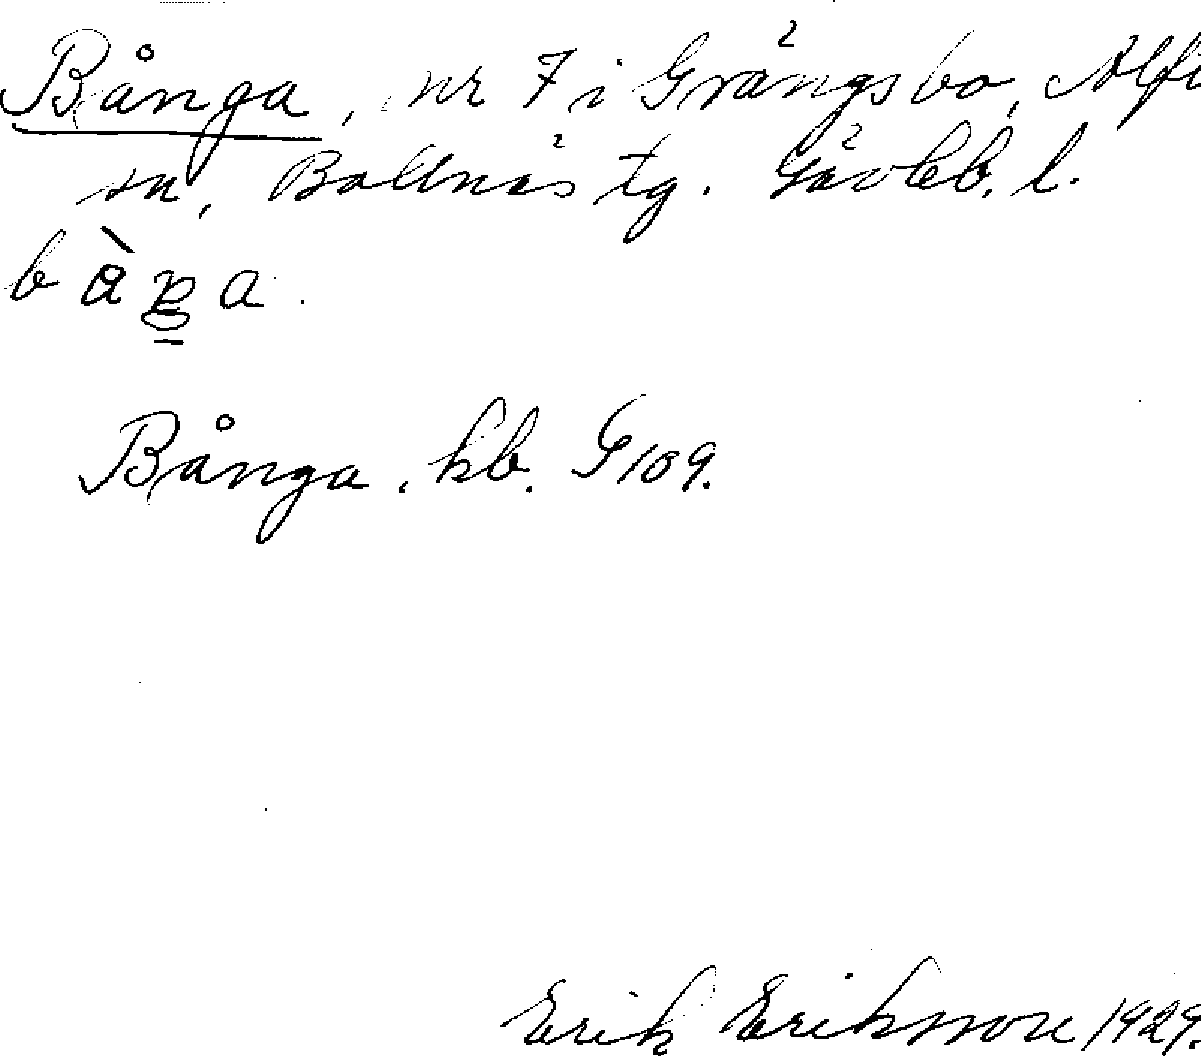 Bånga, nr 7 i Grängsbo, Alfta
sn, Bollnäs tg. Gävleb. l.
Bånga, kb. G 109.
Erik Eriksson 1929.